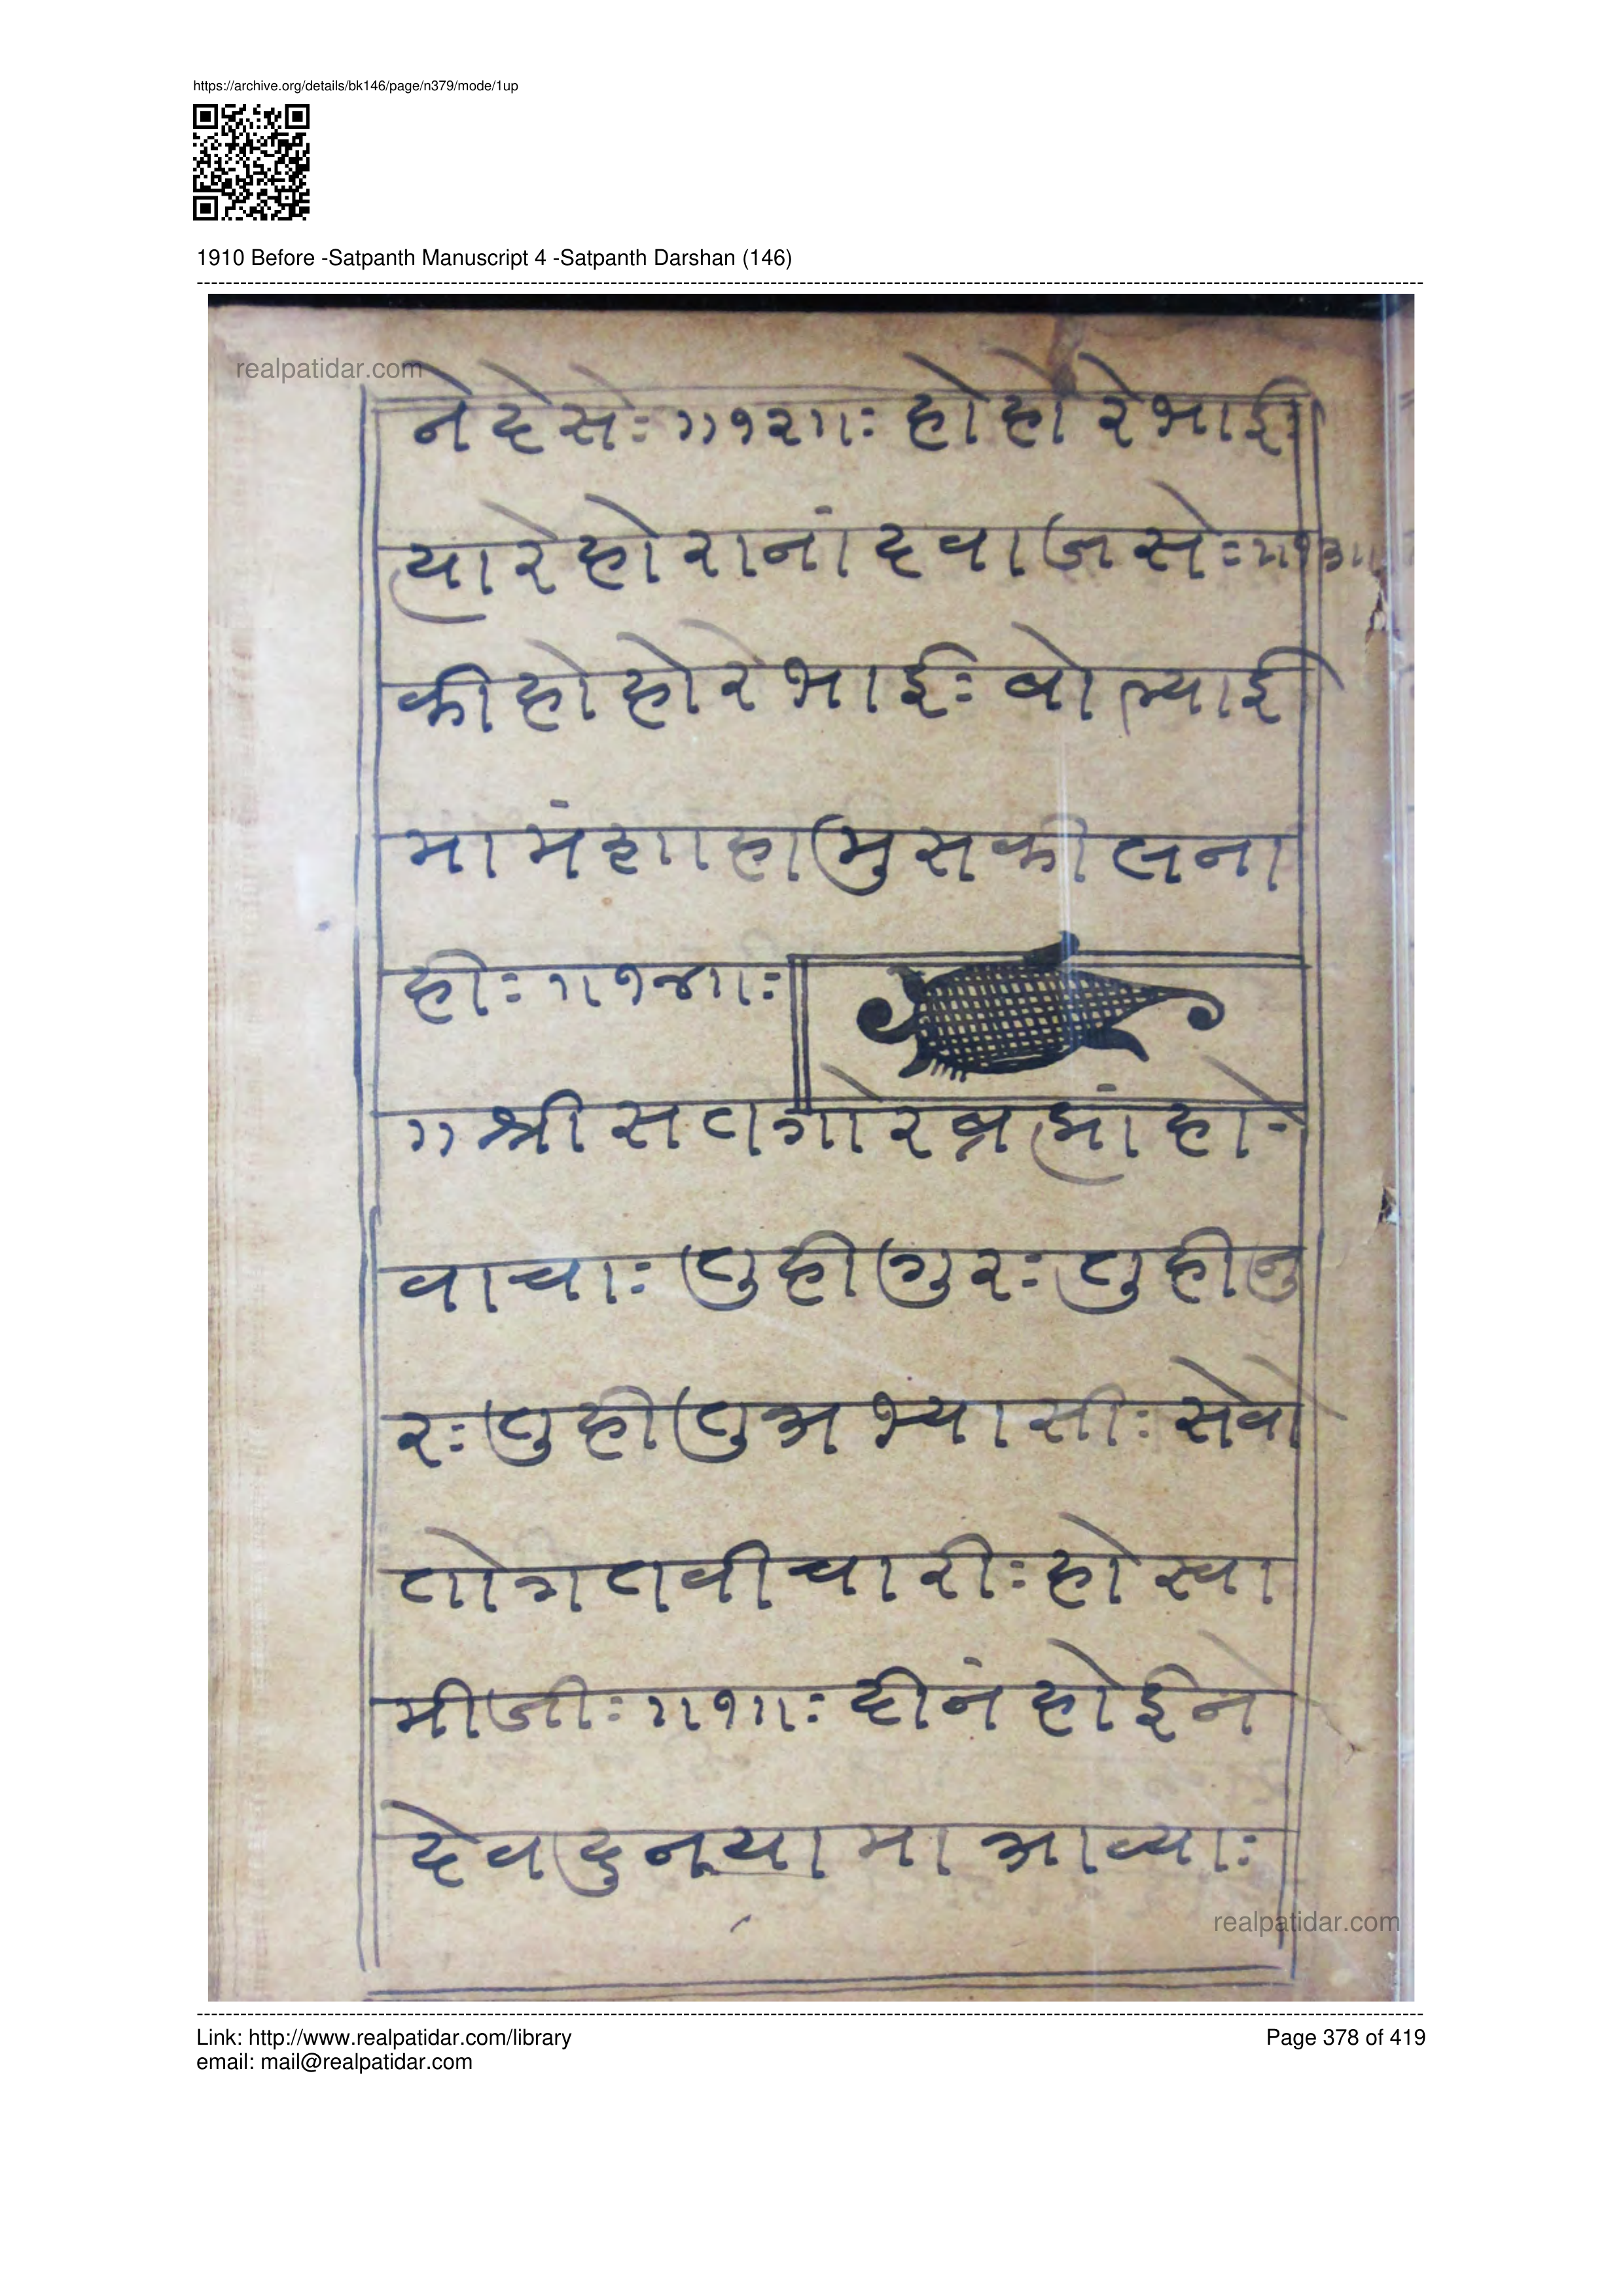 https://archive.org/details/bk146/page/n379/mode/1up
1910 Before -Satpanth Manuscript 4 -Satpanth Darshan (146)
realpatidar.com
ने देसेः ॥१२॥ः होहो रे भाईः
त्यारे होरानां दवाजसेः ॥१३॥
की होहोरे भाईः बोल्याई
मामंशाहामुसकीलना
हीः ॥१४॥ः
॥श्री सतगोरब्रह्मांहो-
वाचाः तुहीगुरः तुहीनु
रः तुहीतुअभ्यासीः सेवो
तोगतवीचारीः होस्वा
मीजीः ॥१॥ः दीनं होईन
देवदुनयामाआव्याः
realpatidar.com
Link: http://www.realpatidar.com/library
Page 378 of 419
email: mail@realpatidar.com